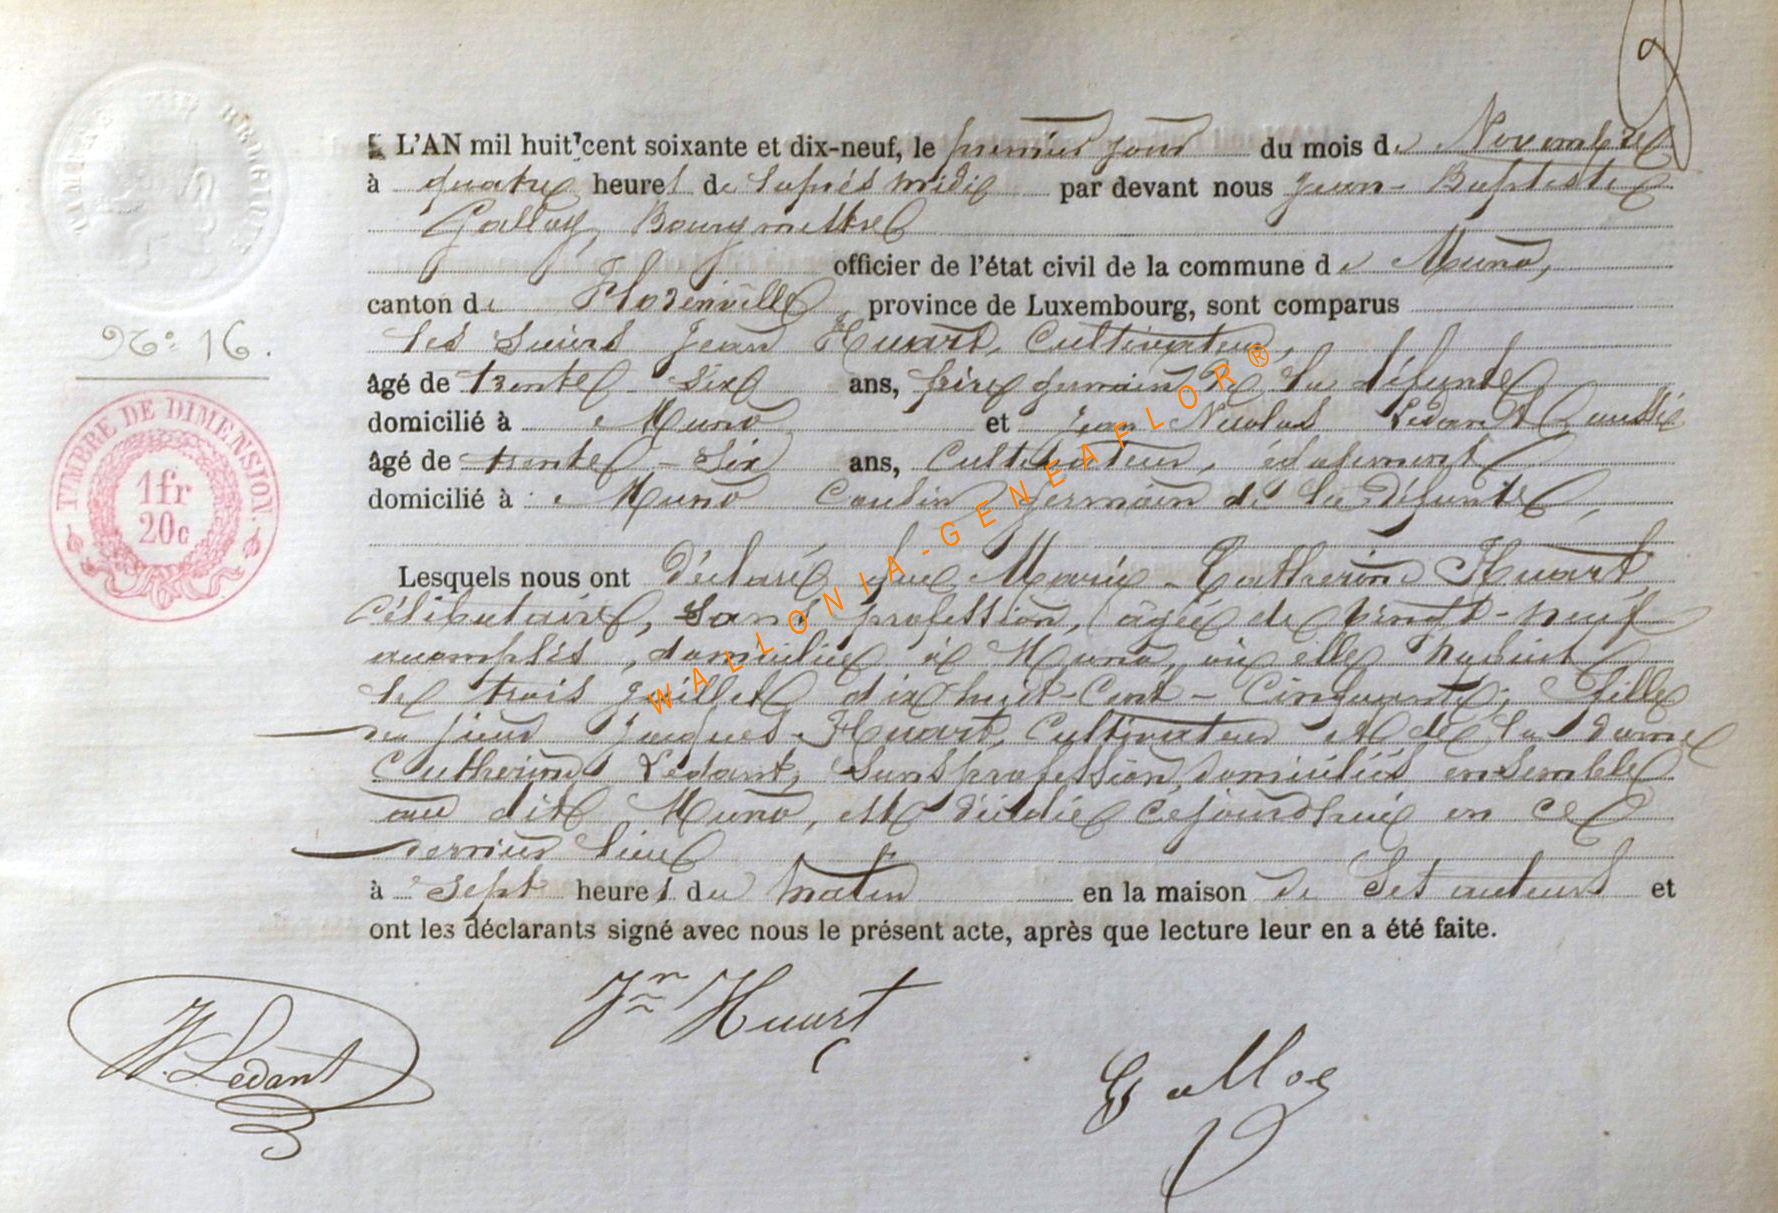 L'AN mil huit cent soixante et dix-neuf, le premier jour du mois de Novembre
à quatre heures de laprés midi par devant nous Jean-Baptiste
Galloy, Bourgmestre
officier de l'état civil de la commune de Muno,
canton de Florenville, province de Luxembourg, sont comparus
les sieurs Jean Huart, Cultivateur,
âgé de trente six ans, frère germain de la défunte
domicilié à Muno et Jean Nicolas Ledant aussi
âgé de trente-six ans, Cultivateur, également
domicilié à Muno Cousin germain de la défunte,
Lesquels nous ont déclaré que Marie-Catherine Huart,
Célibataire, sans profession, âgée de vingt-neuf
accomplis, domiciliée à Muno, où elle naquit
le trois Juillet dix huit-Cent-Cinquante, fille
du sieur Jacques Huart, Cultivateur et de la dame
Catherine Ledant, sans profession, domiciliés ensemble
au dit Muno, est décédée cejourdhui en ce
dernier lieu
à sept heures du matin en la maison de ses auteurs et
ont les déclarants signé avec nous le présent acte, après que lecture leur en a été faite.
N° 16.
TIMBRE DE DIMENSION.
1fr
20c
WALLONIA-GENEAFLOR®
Jn Huart
N. Ledant
Galloy